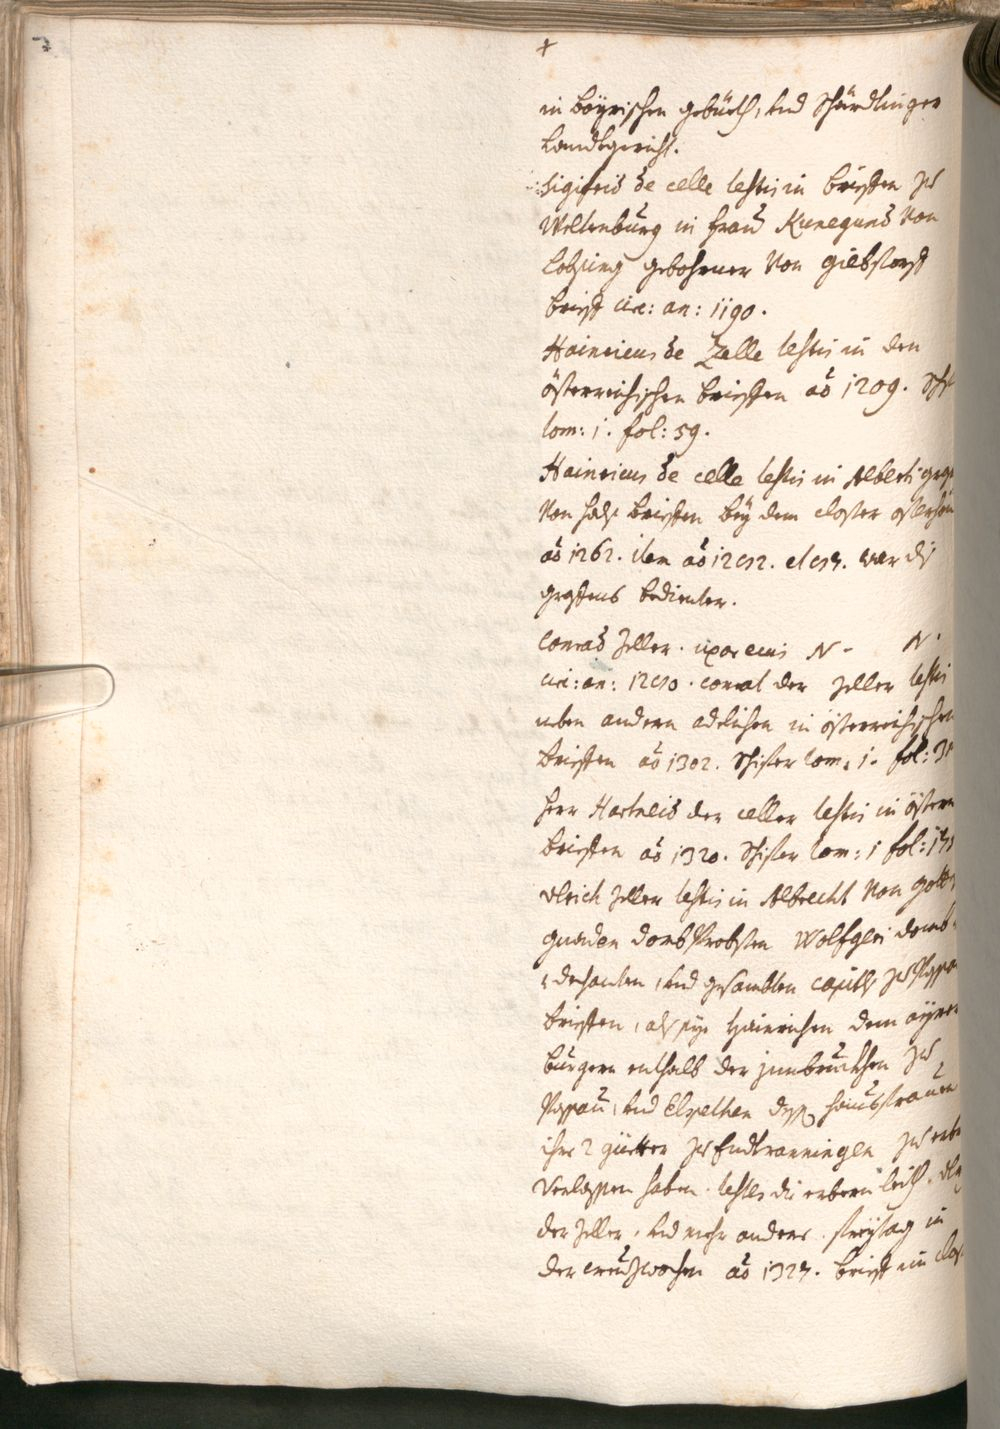 +
in bayrischen gebürth, und Schärdinger
Landtgericht.
Sigfrid de celle testis in brieffen zu
Weltenburg in frau Kunegund von
gebohrner von
brieff circ: an: 1190.
Hainricus de Zelle testis in den
österreichischen brieffen aō 1209.
tom: 1. fol: 59.
Hainricus de celle testis in Alberti
von Hals brieffen bey dem closter
aō 1262. item aō 1292. et 93. war diß
graffens bedienter.
Conrad Zeller. uxor eius N. N.
circ: an: 1290. Conrat der Zeller testis
neben andern adelichen in österreichischen
brieffen aō 1302. tom: 1. fol:
Herr Hartneid der celler testis in
brieffen aō 1320. tom: 1 fol:
Ulrich Zeller testis in Albrecht von gottes
gnaden dombprobsten Wolfgeri domb
dechanten, und gesambten capitl zu
brieffen, als sye Hainrichen dem
burgern enthalb der innbruckhen zu
Passau, und Elspethen dessen haussfrauen
ihre 2 güetter zu zu
verlassen haben. testes die erbern leith.
der Zeller, und mehr andere. freytag in
der creuzwochen aō 1327. brieff im